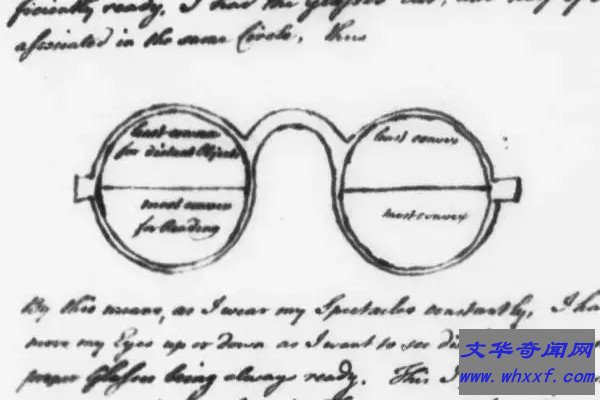 ficiently ready. I had the Glasses cut, and
associated in the same Circle, thus
Least convex
for distant Objects
most convex
for Reading
least convex
most convex
By this means, as I wear my Spectacles constantly, I ha
move my Eyes up or down as I want to see dis
proper Glasses being always ready. This I
文华奇闻网
www.whxxf.com